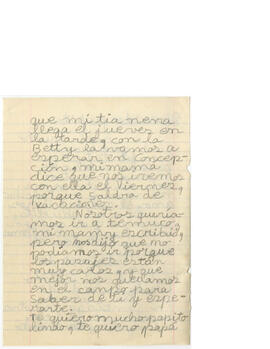 que mi tia nena
llega el jueves en
la tarde, con la
Betty la vamos a
esperar en Concep-
ción, mi mama
dice que nos iremos
con ella el viernes,
porque saldra de
vacaciones.
Nosotros queria-
mos ir a temuco,
mi mamy escribió,
pero nos dijo que no
podiamos ir porque
los pasajes están
muy carlos, y que
mejor nos quedamos
en el campo para
saber de ti y espe-
rarte.
te quiero mucho papito
lindo, te quiero papá